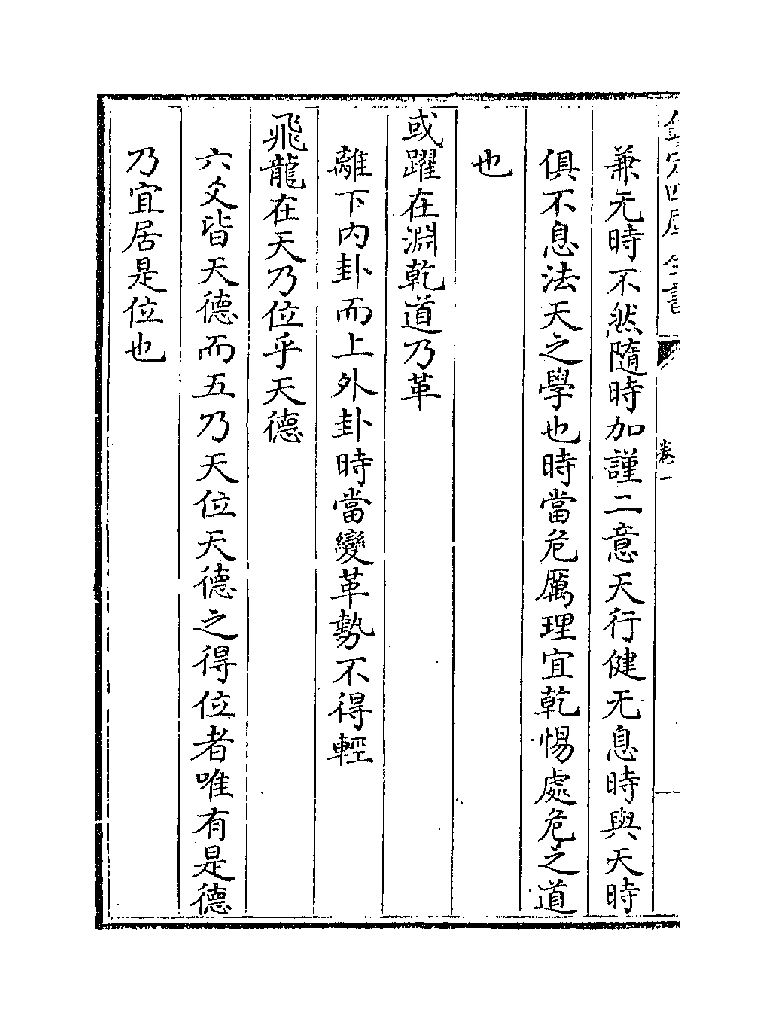 欽定四庫全書
卷一
兼无時不然隨時加謹二意天行健无息時與天時
俱不息法天之學也時當危厲理宜乾惕處危之道
也
或躍在淵乾道乃革
離下内卦而上外卦時當變革勢不得輕
飛龍在天乃位乎天德
六爻皆天德而五乃天位天德之得位者唯有是德
乃宜居是位也